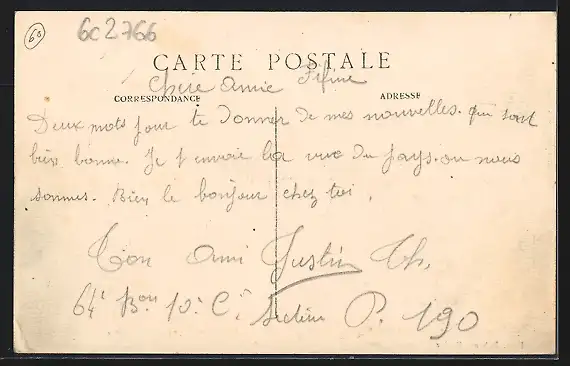 60
6c2766
CARTE POSTALE
Chère Amie Fifine
CORRESPONDANCE
ADRESSE
Deux mots pour te donner de mes nouvelles. qui sont
bien bonne. Je t'envoie la vue du pays. ou nous
sommes. Bien le bonjour chez toi.
Ton Ami Justin Ch.
64e Bon 10e Cie secteur P. 190